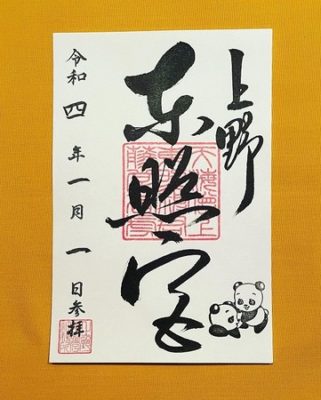 上野
東照宮
令和四年一月一日参拝